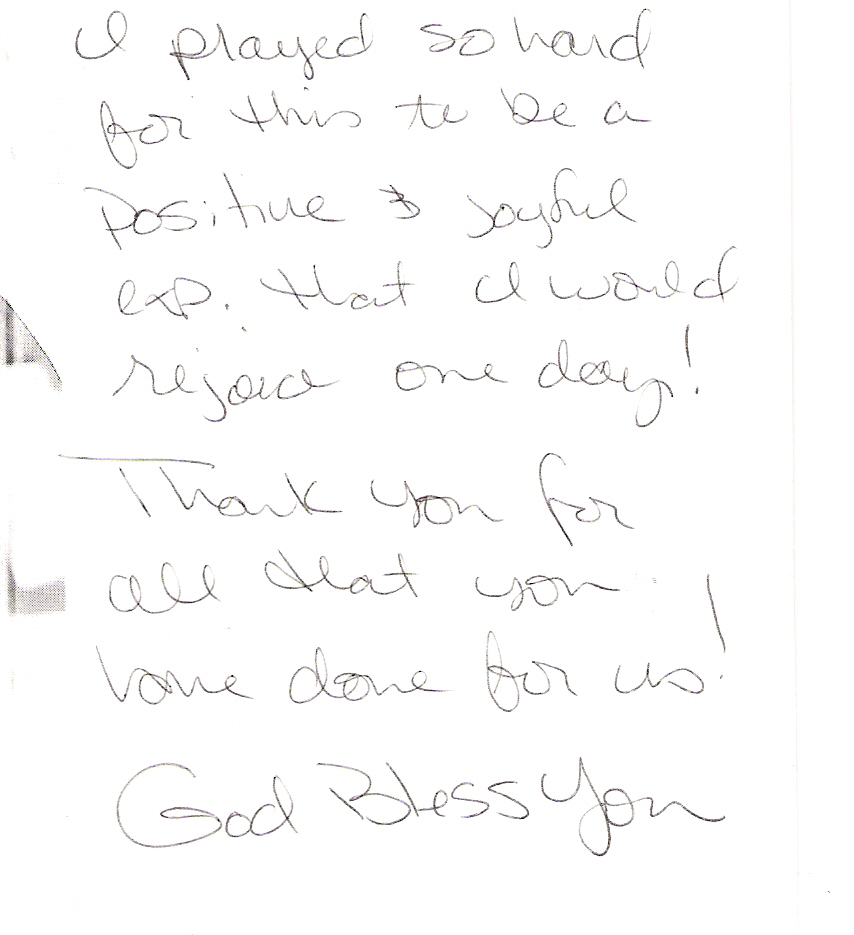 I prayed so hard
for this to be a
positive & joyful
exp. that I would
rejoice one day!
Thank you for
all that you
have done for us!
God Bless You